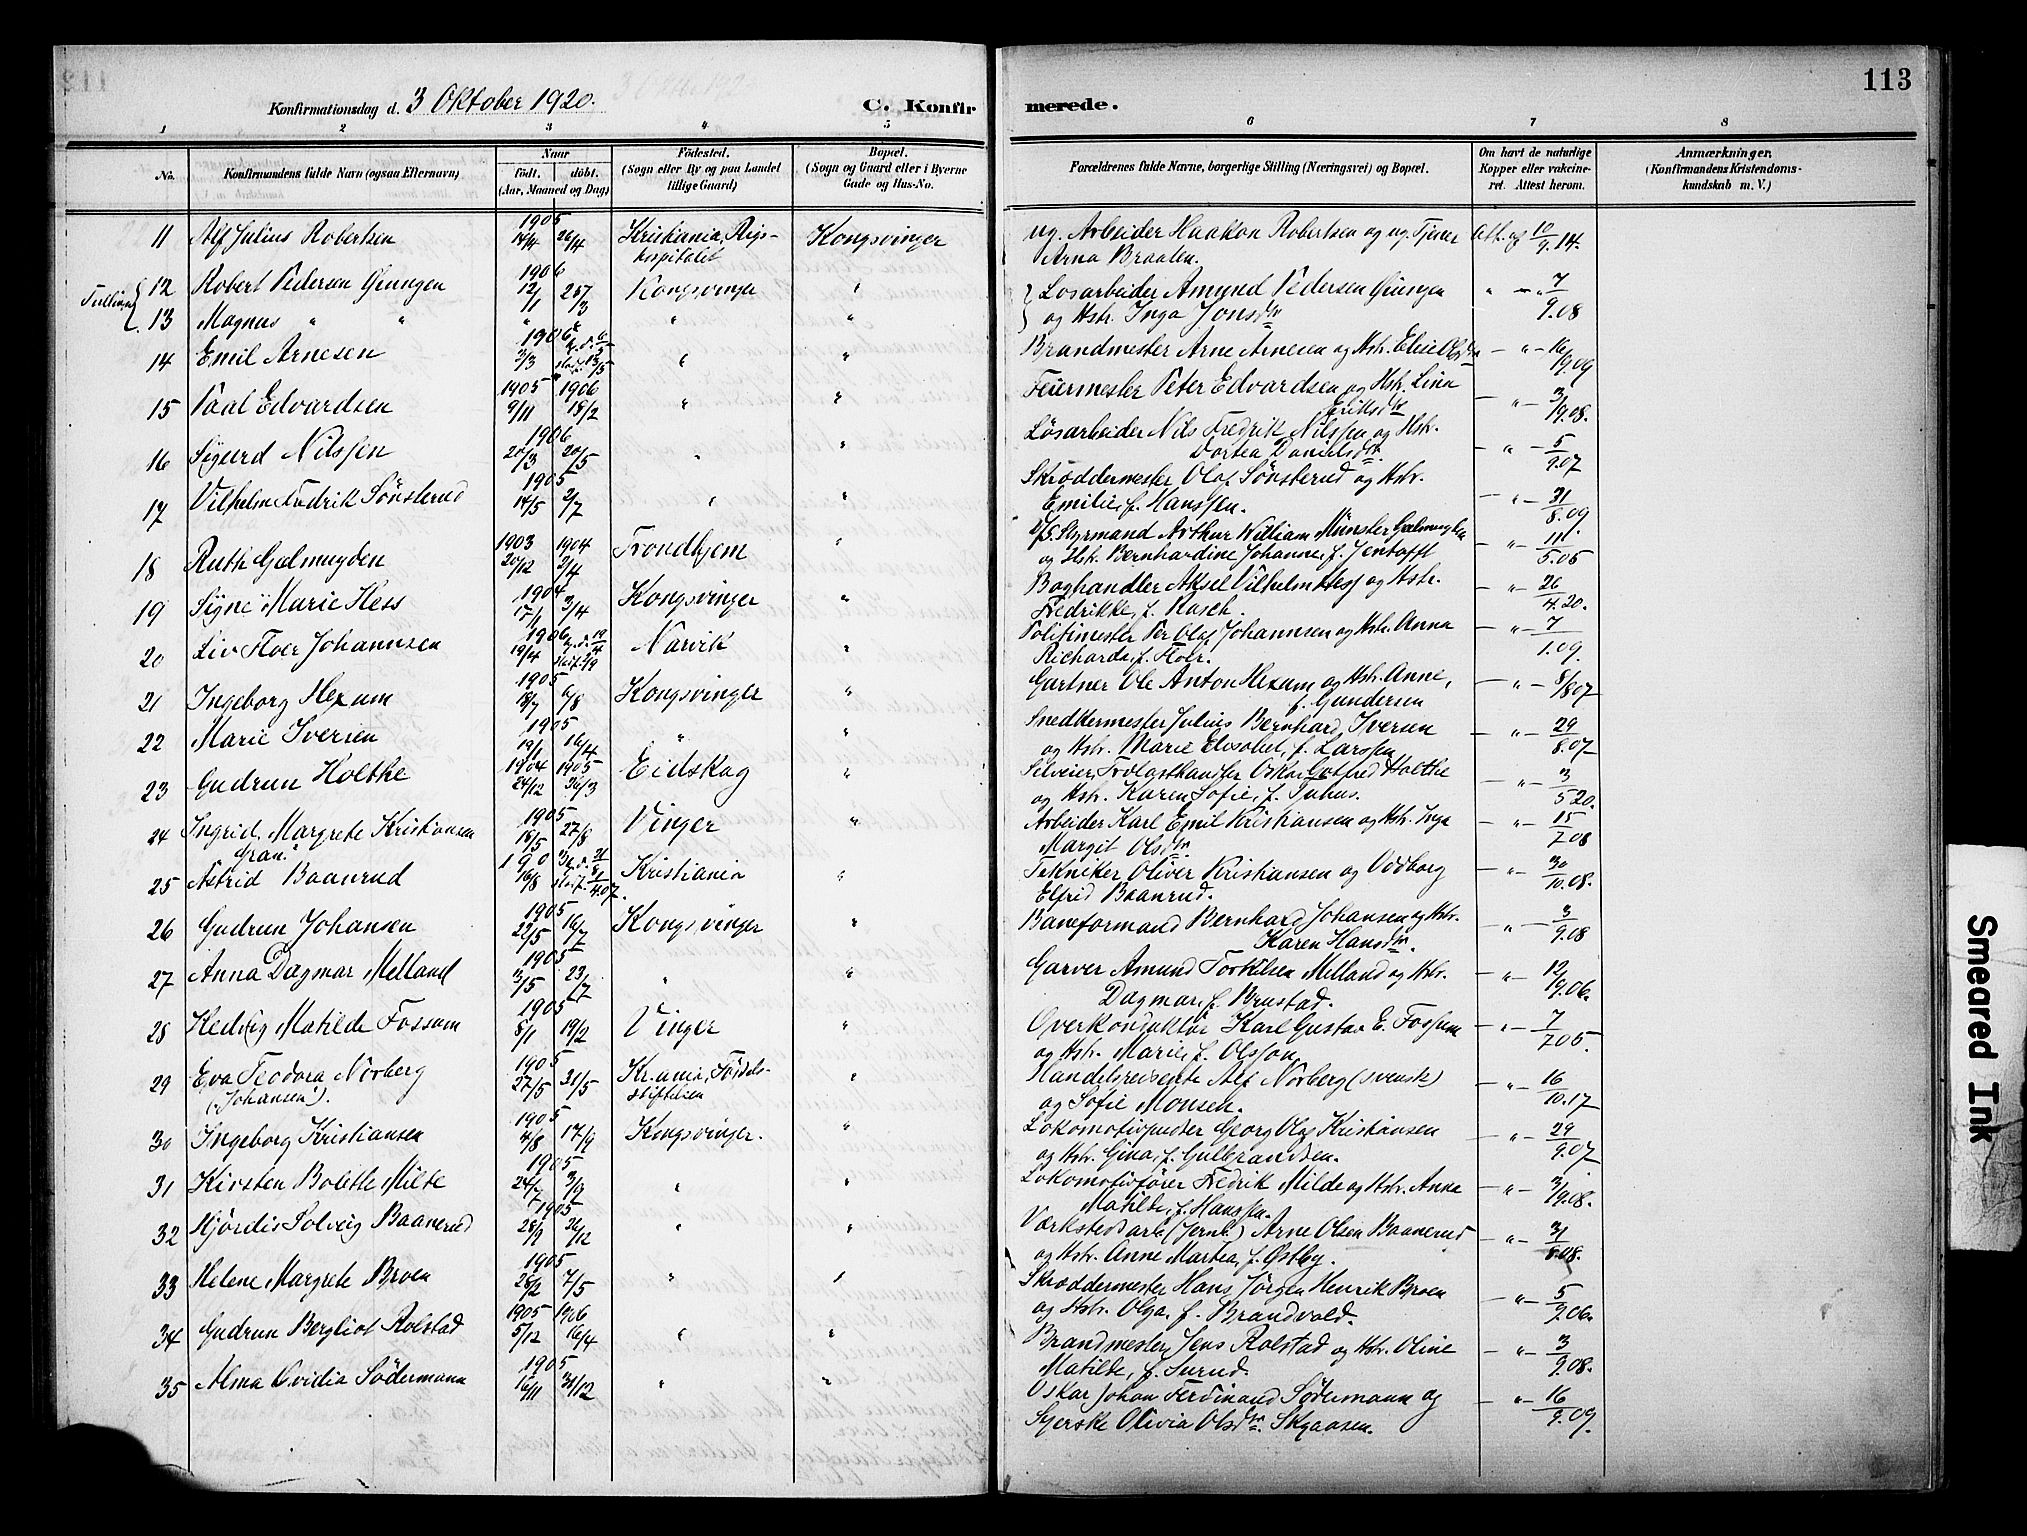 113
Konfirmationsdag d. 3 Oktober 1920.
C. Konfirmerede.
1 2 3 4 5 6 7 8
No. Konfirmandens fulde Navn (ogsaa Efternavn)
Naar
födt. döbt.
(Aar, Maaned og Dag)
Födested.
(Sogn eller By og paa Landet
tillige Gaard)
Bopæl.
(Sogn og Gaard eller i Byerne
Gade og Hus-No.
Forældrenes fulde Navne, borgerlige Stilling (Næringsvei) og Bopæl.
Om havt de naturlige
Kopper eller vakcine-
ret. Attest herom.
Anmærkninger.
(Konfirmandens Kristendoms-
kundskab m. V.)
11 Alf Julius Robertsen 1905 14/4 26/4 Kristiania, Rigs-hospitalet Kongsvinger ug. Arbeider Haakon Robertsen og ug. Tjener
Arna Braaten. Att. af 10/9.14.
12 Robert Pedersen Giungen 1906 12/1 Kongsvinger " Løsarbeider Amund Pedersen Giungen " — " 7/9.08
13 Magnus " " " " " og Hstr. Inga Jonsdtr
14 Emil Arnesen 1906 3/3 " " Brandmester Arne Arnesen og Hstr. Elise Olsdtr — " — 16/9.09
15 Paal Edvardsen 1905 9/11 1906 18/2 " " Feiermester Peter Edvardsen og Hstr. Lina
Eriksdtr — " — 3/9.08.
16 Sigurd Nilssen 1906 20/3 20/5 " " Løsarbeider Nils Fredrik Nilssen og Hstr.
Dortea Danielsdtr. — " — 5/9.07
17 Vilhelm Fredrik Sönsterud 1905 14/5 2/7 " " Skræddermester Olaf Sönsterud og Hstr.
Emilie, f. Hanssen. — " — 31/8.09
18 Ruth Galmuyden 1903 20/12 1904 2/4 Trondhjem " Styrmand Arthur William Münster Galmuyden
og Hstr. Bernhardine Johanne, f. Jentofft — " — 11/5.05
19 Signe Marie Hess 1904 17/1 3/4 Kongsvinger " Boghandler Aksel Vilhelm Hess og Hstr.
Fredrikke, f. Rasch. — " — 26/4.20.
20 Liv Floer Johannsen 1906 19/4 Narvik " Politimester Per Olaf Johannsen og Hstr. Anna
Richarda, f. Floer. — " — 7/1.09.
21 Ingeborg Hexum 1905 18/7 6/8 Kongsvinger " Gartner Ole Anton Hexum og Hstr. Anne,
f. Gundersen — " — 8/8 07
22 Marie Iversen 1905 19/1 16/4 " " Snedkermester Julius Bernhard Iversen
og Hstr. Marie Elisabet, f. Larssen — " — 29/8.07
23 Gudrun Holthe 1904 24/12 1905 26/3 Eidskog " Selveier, Trælasthandler Oskar Gotfred Holthe
og Hstr. Karen Sofie, f. — " — 3/5 20.
24 Ingrid Margrete Kristiansen
Gran. 1905 18/5 27/8 Vinger " Arbeider Karl Emil Kristiansen og Hstr. Inga
Margit Olsdtr. — " — 15/7 08
25 Astrid Baanrud 190 16/8 Kristiania " Tekniker Oliver Kristiansen og Oddborg
Elfrid Baanrud. — " — 30/10.08.
26 Gudrun Johansen 1905 22/5 16/7 Kongsvinger " Baneformand Bernhard Johansen og Hstr.
Karen Hansdtr. — " — 3/9.08
27 Anna Dagmar Melland 1905 3/5 23/7 " " Garver Amund Torkilsen Melland og Hstr.
Dagmar, f. Brustad. — " — 12/9.06.
28 Hedvig Matilde Fossum 1905 8/1 19/2 Vinger " Overkonduktör Karl Gustav E. Fossum
og Hstr. Marie, f. Olsson — " — 7/7 05.
29 Eva Teodora Nörberg
(Johansen). 1905 27/5 31/5 Kr.ania, Födsels-stiftelsen " Handelsreisende Alf Nörberg (svensk)
og Sofie Monsen. — " — 16/10.17
30 Ingeborg Kristiansen 1905 4/8 17/9 Kongsvinger. " Lokomotivpudser Georg Olaf Kristiansen
og Hstr. Gina, f. Gulbrandsen. — " — 29/9.07
31 Kirsten Bolette Milde 1905 24/7 3/9 " " Lokomotivförer Fredrik Milde og Hstr. Anna
Matilde, f. Hanssen. — " — 3/9.08.
32 Hjördis Solveig Baanerud 1905 28/9 26/12 " " Værkstedsarb. (Jernb.) Arne Olsen Baanerud
og Hstr. Anne Martea, f. Østby. — " — 31/8.08.
33 Helene Margrete Broen 1905 28/2 7/5 " " Skræddermester Hans Jörgen Henrik Broen
og Hstr. Olga, f. Brandvold. — " — 5/9.06.
34 Gudrun Bergliot Rolstad 1905 5/12 1906 16/4 " " Brandmester Jens Rolstad og Hstr. Oline
Matilde, f. Surud. — " — 3/9.08.
35 Alma Ovidia Södermann 1905 16/11 31/12 " " Oskar Johan Ferdinand Södermann og
Syerske Olivia Olsdtr. Skyaasen. — " — 16/9.09
Smeared Ink